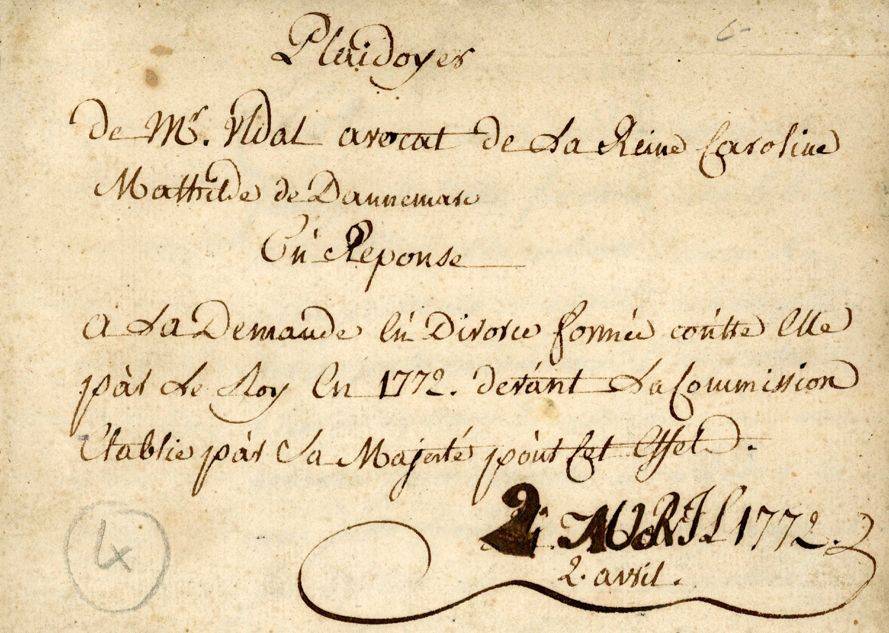 Plaidoyer
de Mr. Uldal avocat de La Reine Caroline
Mathilde de Dannemarc
En Reponse
a La Demande En Divorce formée contre Elle
par Le Roy En 1772. devant La Commission
Etablie par Sa Majesté pour Cet Effet.
2 AVRIL 1772.
2. avril.
4